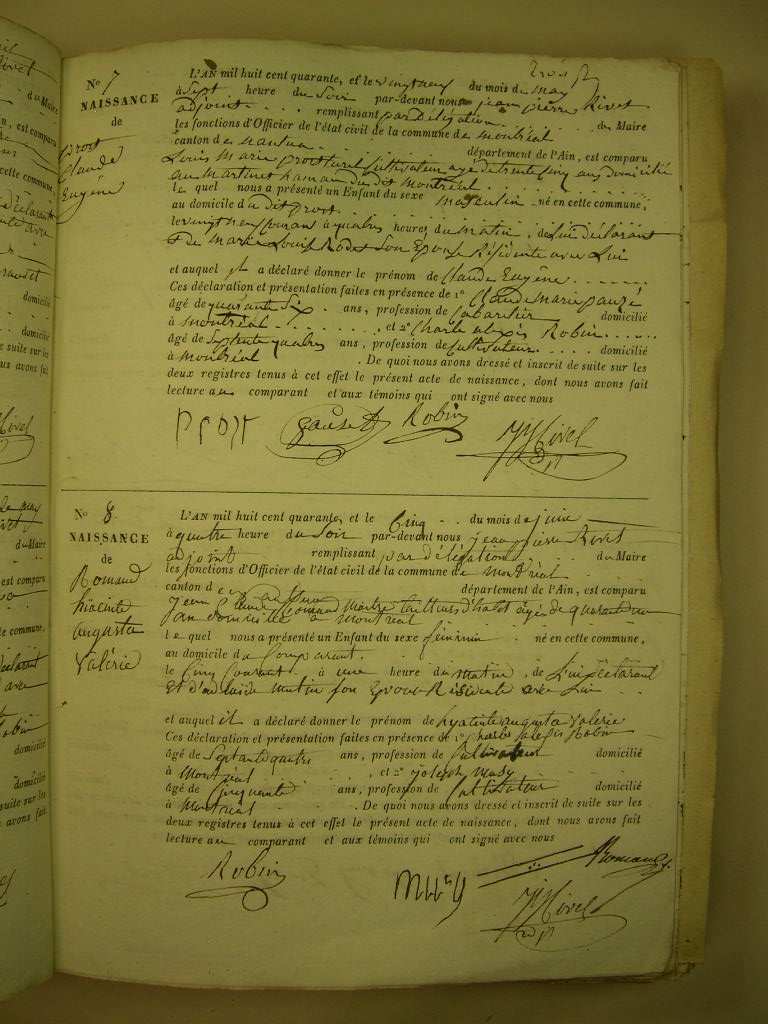 trois
No 7
NAISSANCE
de
prost
Claude
Eugène
L'AN mil huit cent quarante, et le vingtneuf du mois de may
à Sept heure du Soir par-devant nous jean pierre Rivet
adjoint remplissant par déligation du Maire
les fonctions d'Officier de l'état civil de la commune de montréal
canton de nantua département de l'Ain, est comparu
Louis Marie prost cultivateur agé de trente cinq ans domicilié
au Martinet hamau du dit montréal
le quel nous a présenté un Enfant du sexe masculin né en cette commune,
au domicile du dit prost
le vingtneuf courant à quatre heures du matin, de lui déclarant
et de marie Louise Rodet Son Epouse Résidente avec Lui
et auquel il a déclaré donner le prénom de Claude Eugène
Ces déclaration et présentation faites en présence de 1°
âgé de quarante Six ans, profession de Cabartier domicilié
à montréal, et 2° Charle alexis Robin
âgé de Septente quatres ans, profession de Cultivateur domicilié
à montréal. De quoi nous avons dressé et inscrit de suite sur les
deux registres tenus à cet effet le présent acte de naissance, dont nous avons fait
lecture au comparant et aux témoins qui ont signé avec nous
prost Robin JP Rivet
adjt
No 8
NAISSANCE
de
Romand
hiacinte
augusta
Valérie
L'AN mil huit cent quarante, et le Cinq du mois de juin
à quatre heure du Soir par-devant nous jean pierre Rivet
adjoint remplissant par délégation du Maire
les fonctions d'Officier de l'état civil de la commune de montréal
canton de nantua département de l'Ain, est comparu
jean Claude Romand Maitre agés de quarante un
an domicillé a Montréal
le quel nous a présenté un Enfant du sexe féminin né en cette commune,
au domicile du Comparant
le Cinq Courant à une heure du matin, de Lui déclarant
et d'adelaide mutin son Epouse Résidente avec Lui
et auquel il a déclaré donner le prénom de hyatinte augusta Valérie
Ces déclaration et présentation faites en présence de 1° Charle alexis Robin
âgé de Septante quatre ans, profession de Cultivateur domicilié
à Montréal, et 2° joseph
âgé de Cinquante ans, profession de Cultivateur domicilié
à Montréal. De quoi nous avons dressé et inscrit de suite sur les
deux registres tenus à cet effet le présent acte de naissance, dont nous avons fait
lecture au comparant et aux témoins qui ont signé avec nous
Robin Romand
JP Rivet
adjt